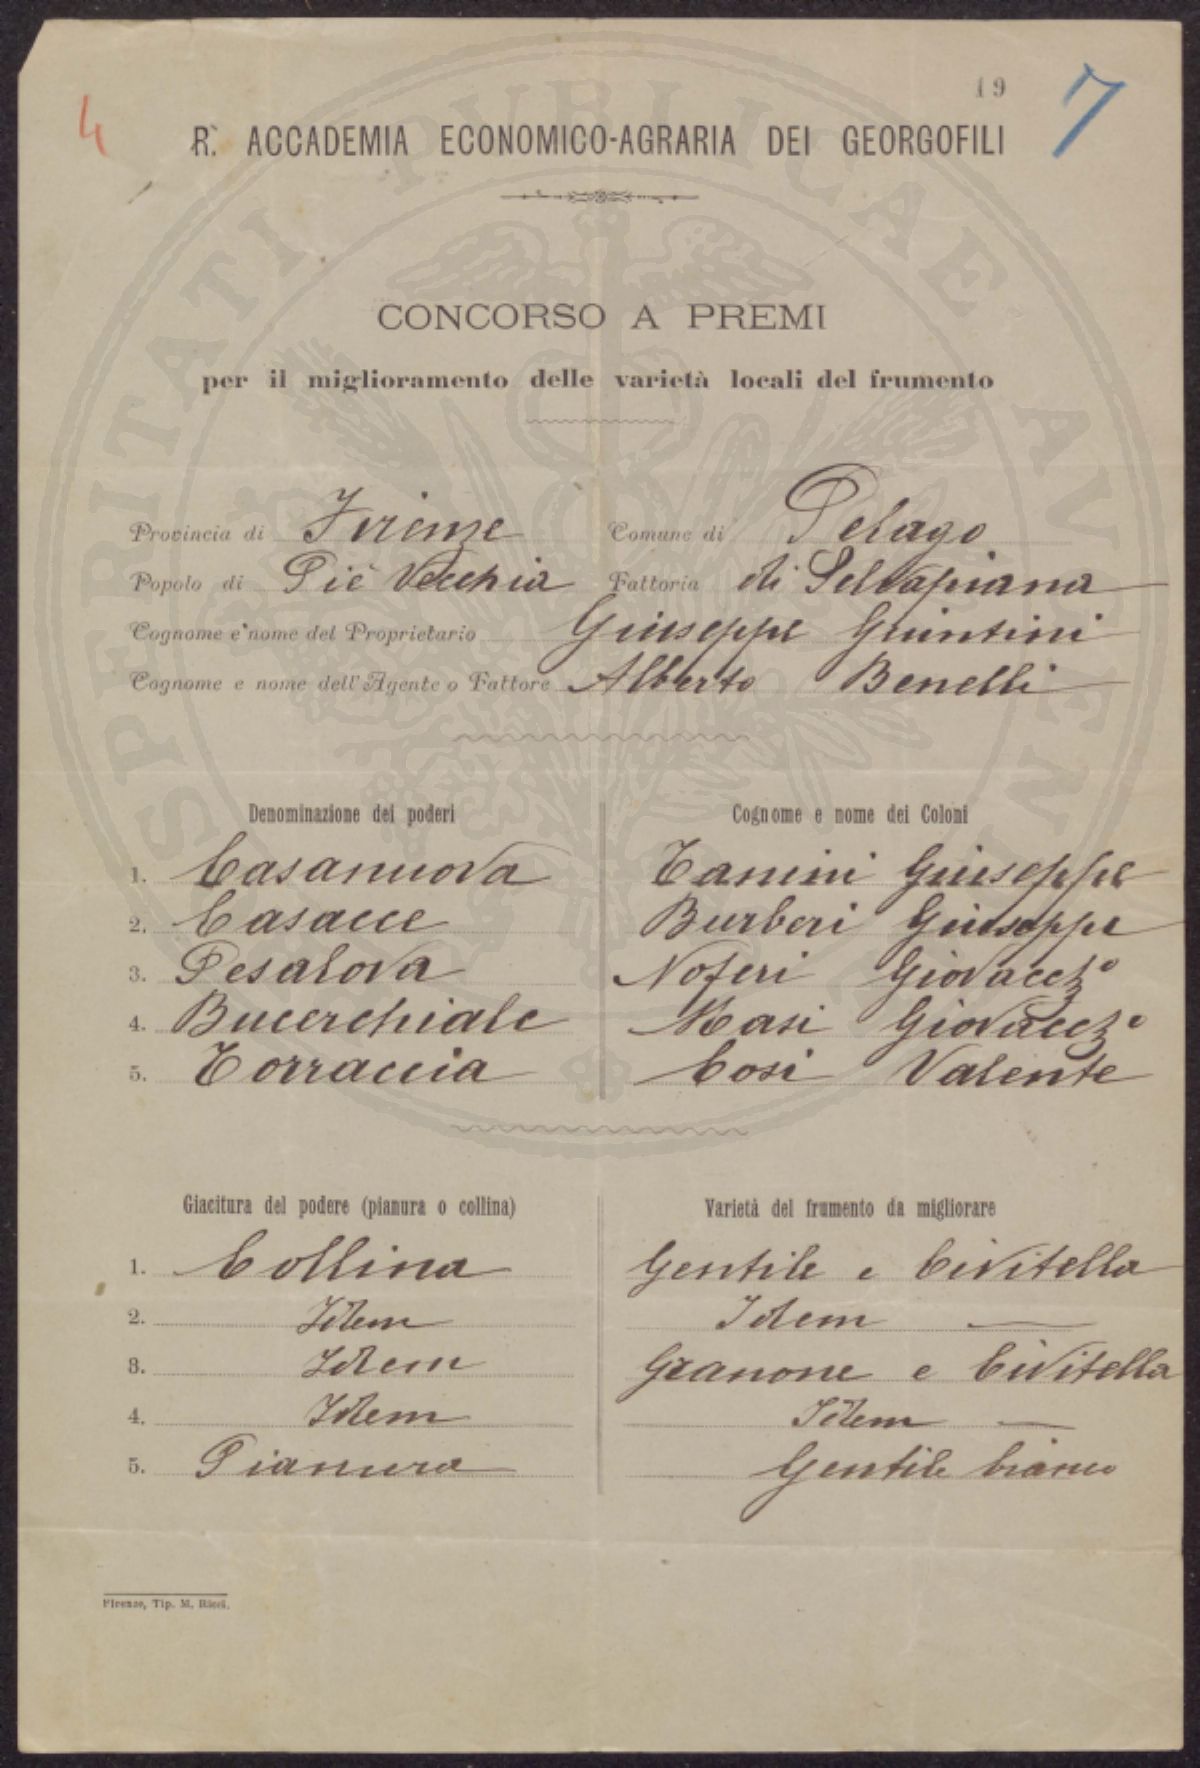 4
19
7
R. ACCADEMIA ECONOMICO-AGRARIA DEI GEORGOFILI
CONCORSO A PREMI
per il miglioramento delle varietà locali del frumento
Provincia di Firenze Comune di Pelago
Popolo di Piè Vecchia Fattoria di Selvapiana
Cognome e nome del Proprietario Giuseppe Giuntini
Cognome e nome dell'Agente o Fattore Alberto Benelli
Denominazione dei poderi Cognome e nome dei Coloni
1. Casanuova Tanini Giuseppe
2. Casacce Burberi Giuseppe
3. Pesalova Noferi Giovacch°
4. Bucerchiale Masi Giovacch°
5. Torraccia Cosi Valente
Giacitura del podere (pianura o collina) Varietà del frumento da migliorare
1. Collina Gentile e Civitella
2. Idem Idem —
3. Idem Granone e Civitella
4. Idem Idem —
5. Pianura Gentile bianco
Firenze, Tip. M. Ricci.
PROSPERITATI PVBLICAE AVGENDAE